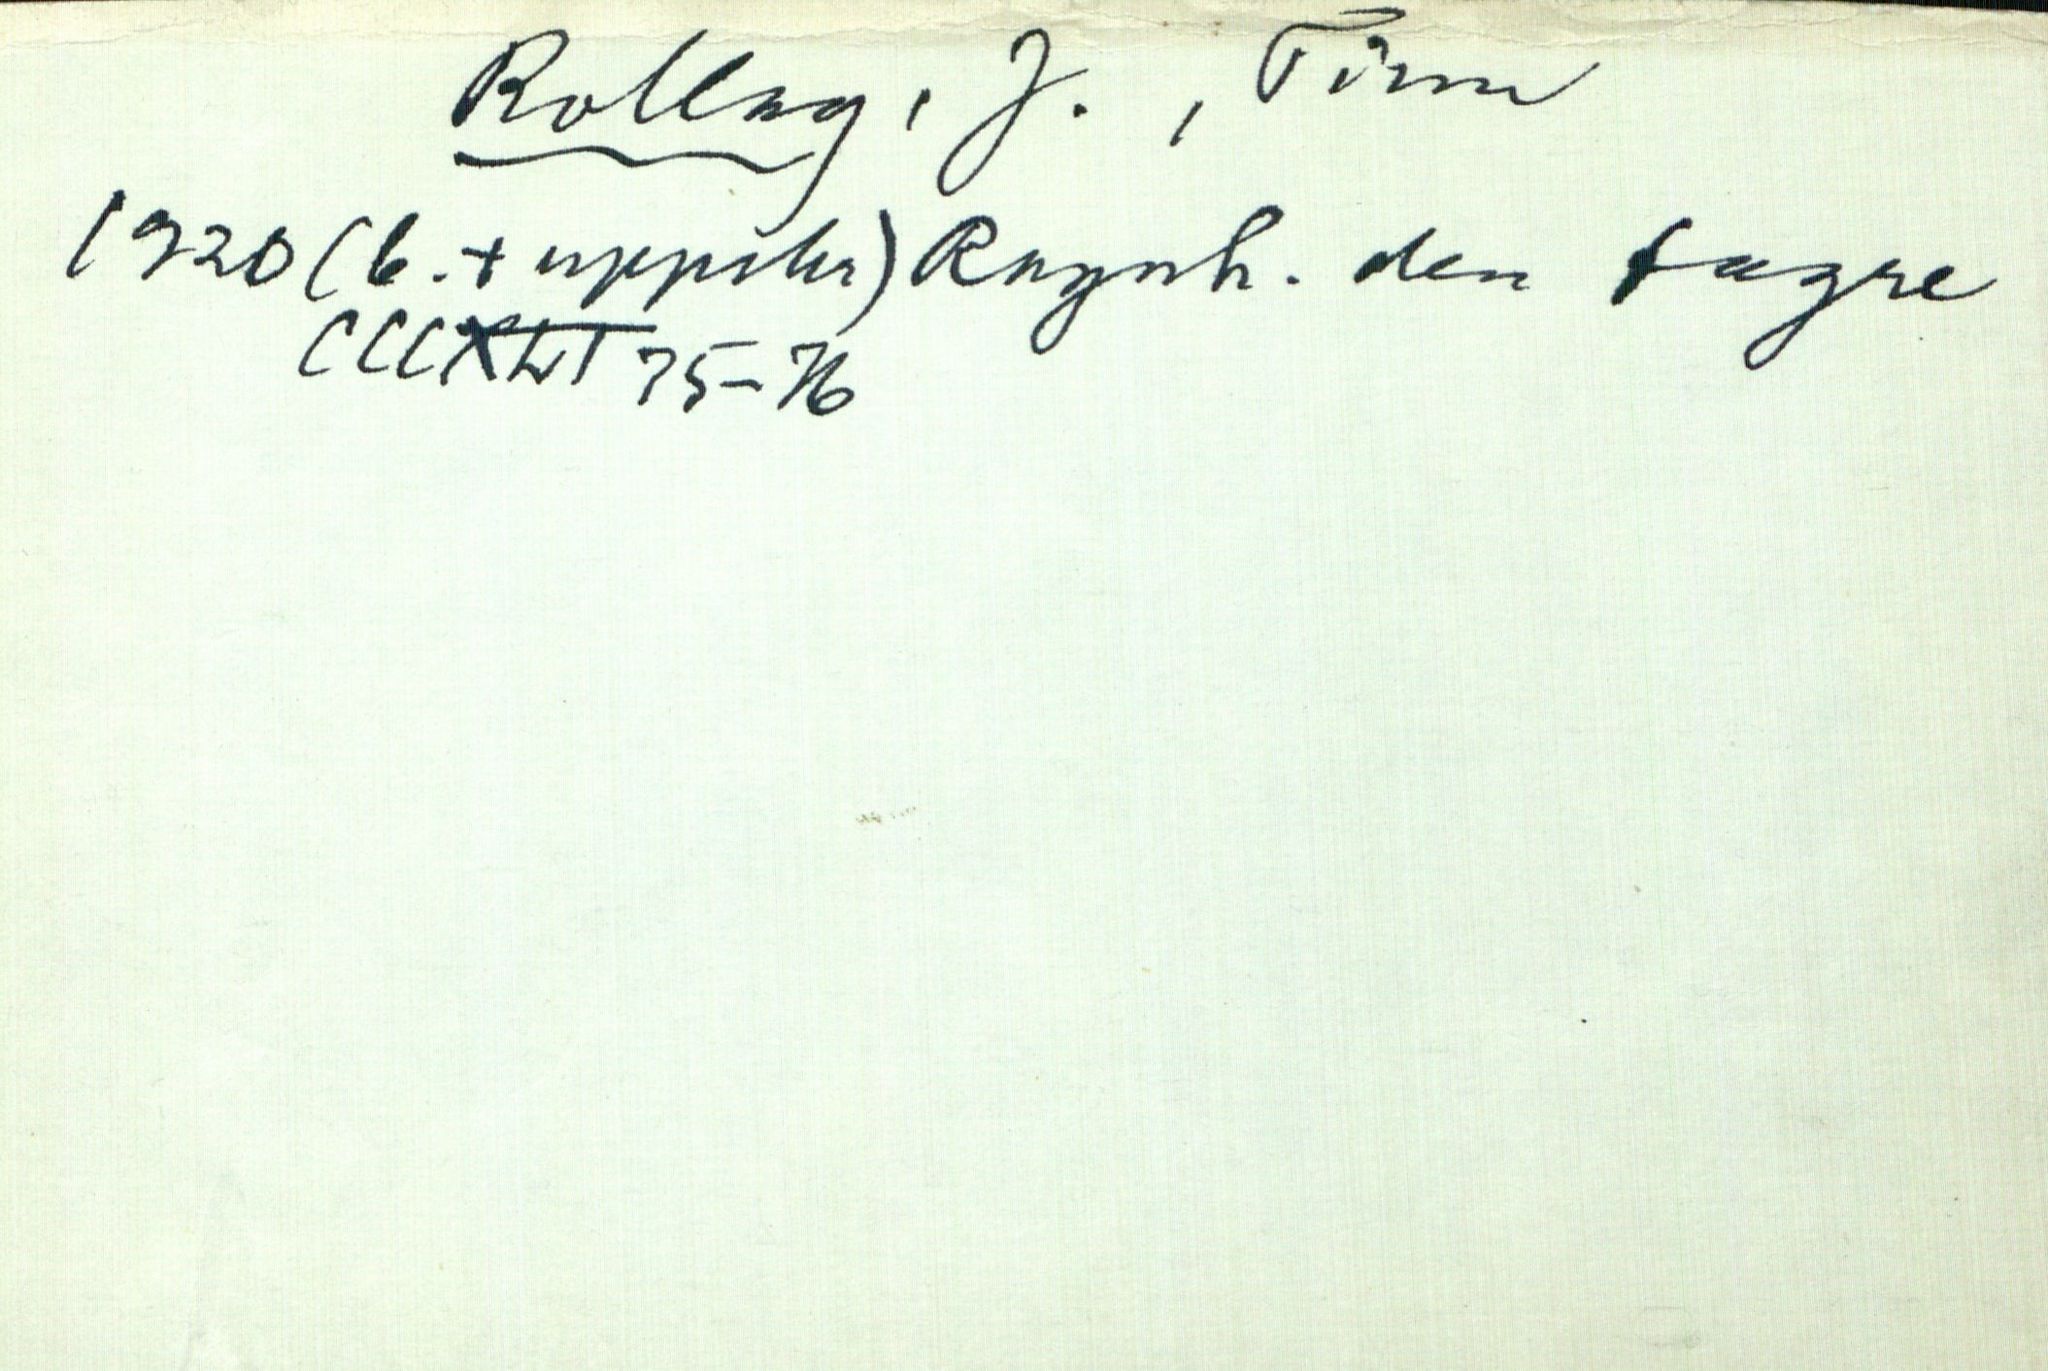 Rollag, J., Tinn
1920 (b. + uppskr) Ragnh. den fagre
CCCXLI 75-76